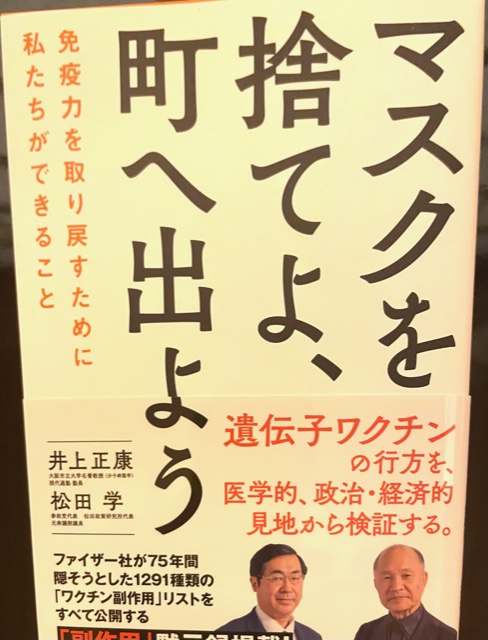 マスクを
捨てよ、
町へ出よう
免疫力を取り戻すために
私たちができること
遺伝子ワクチン
の行方を、
医学的、政治・経済的
見地から検証する。
井上正康
大阪市立大学名誉教授(分子病態学)
現代適塾 塾長
松田 学
参政党代表 松田政策研究所代表
元衆議院議員
ファイザー社が75年間
隠そうとした1291種類の
「ワクチン副作用」リストを
すべて公開する